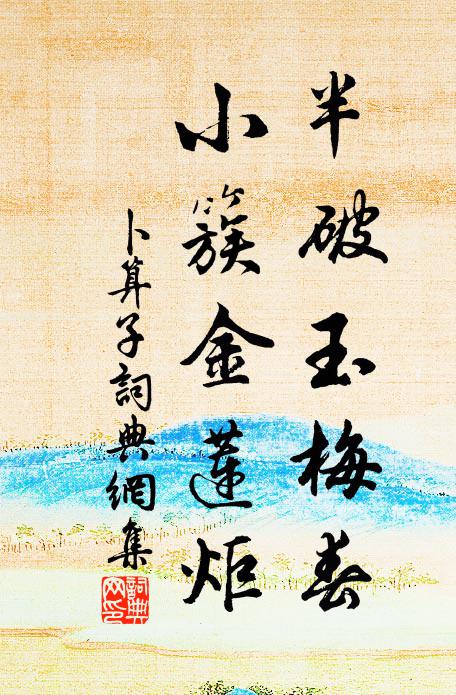 半破玉梅春
小簇金蓮炬
卜算子詞典網集
詞典